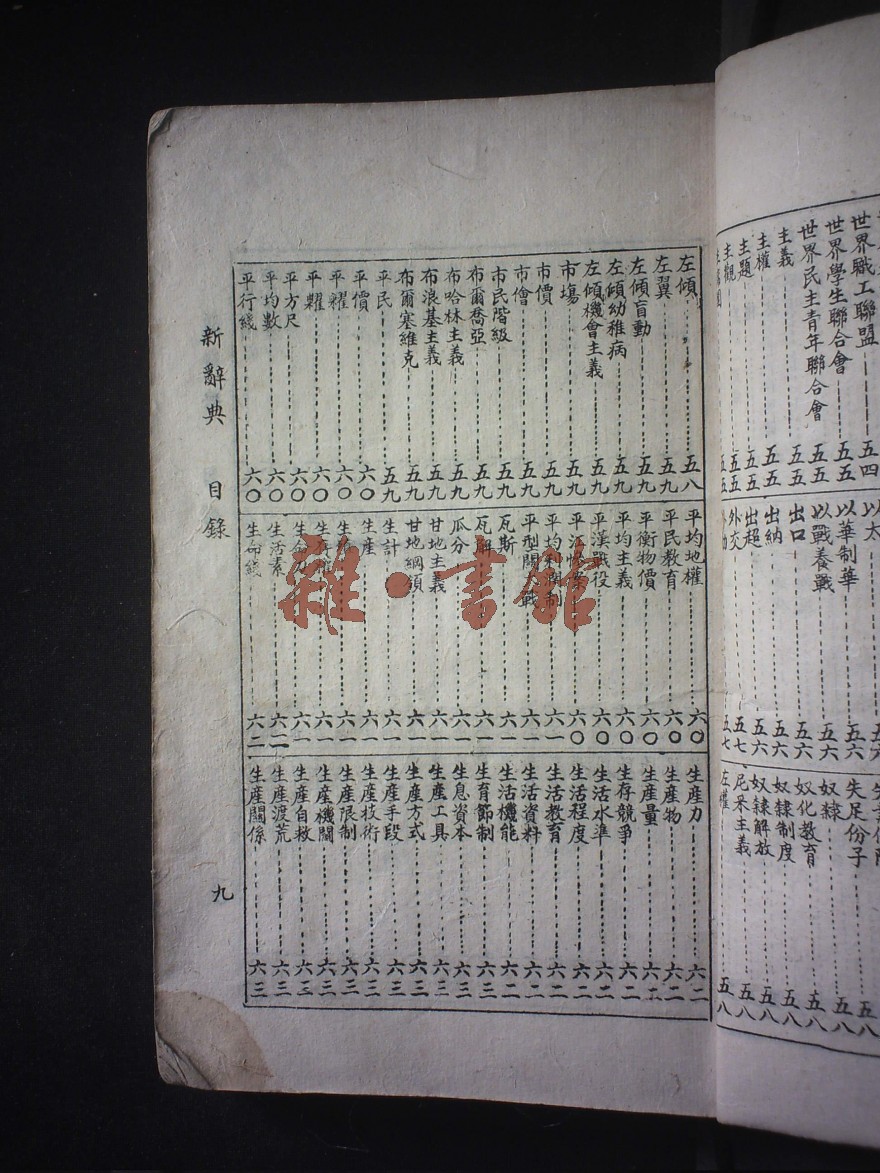 世界職工聯盟 五四
世界學生聯合會 五五
世界民主青年聯合會 五五
主義 五五
主權 五五
主題 五五
主觀 五五
以太 五六
以華制華 五六
以戰養戰 五六
出口 五六
出納 五六
出超 五六
外交 五七
五七
失足份子 五八
奴隸 五八
奴化教育 五八
奴隸制度 五八
奴隸解放 五八
尼采主義 五八
左權 五八
左傾 五八
左翼 五九
左傾盲動 五九
左傾幼稚病 五九
左傾機會主義 五九
市場 五九
市價 五九
市儈 五九
市民階級 五九
布爾喬亞 五九
布哈林主義 五九
布浪基主義 五九
布爾塞維克 五九
平民 五九
平價 六〇
六〇
六〇
平方尺 六〇
平均數 六〇
平行綫 六〇
平均地權 六〇
平民教育 六〇
平衡物價 六〇
平均主義 六〇
平漢戰役 六〇
平江慘案 六〇
平均利潤制 六一
平型關大戰 六一
瓦斯 六一
瓦解 六一
瓜分 六一
甘地主義 六一
甘地綱領 六一
生計 六一
生產 六一
六一
生存權 六一
生命力 六一
生活素 六二
生命綫 六二
生產力 六二
生產物 六二
生產量 六二
生存競爭 六二
生活水準 六二
生活程度 六二
生活教育 六二
生活資料 六二
生活機能 六二
生育節制 六三
生息資本 六三
生產工具 六三
生產方式 六三
生產手段 六三
生產技術 六三
生產限制 六三
生產機關 六三
生產自救 六三
生產渡荒 六三
生產關係 六三
新辭典 目錄 九
雜·書館